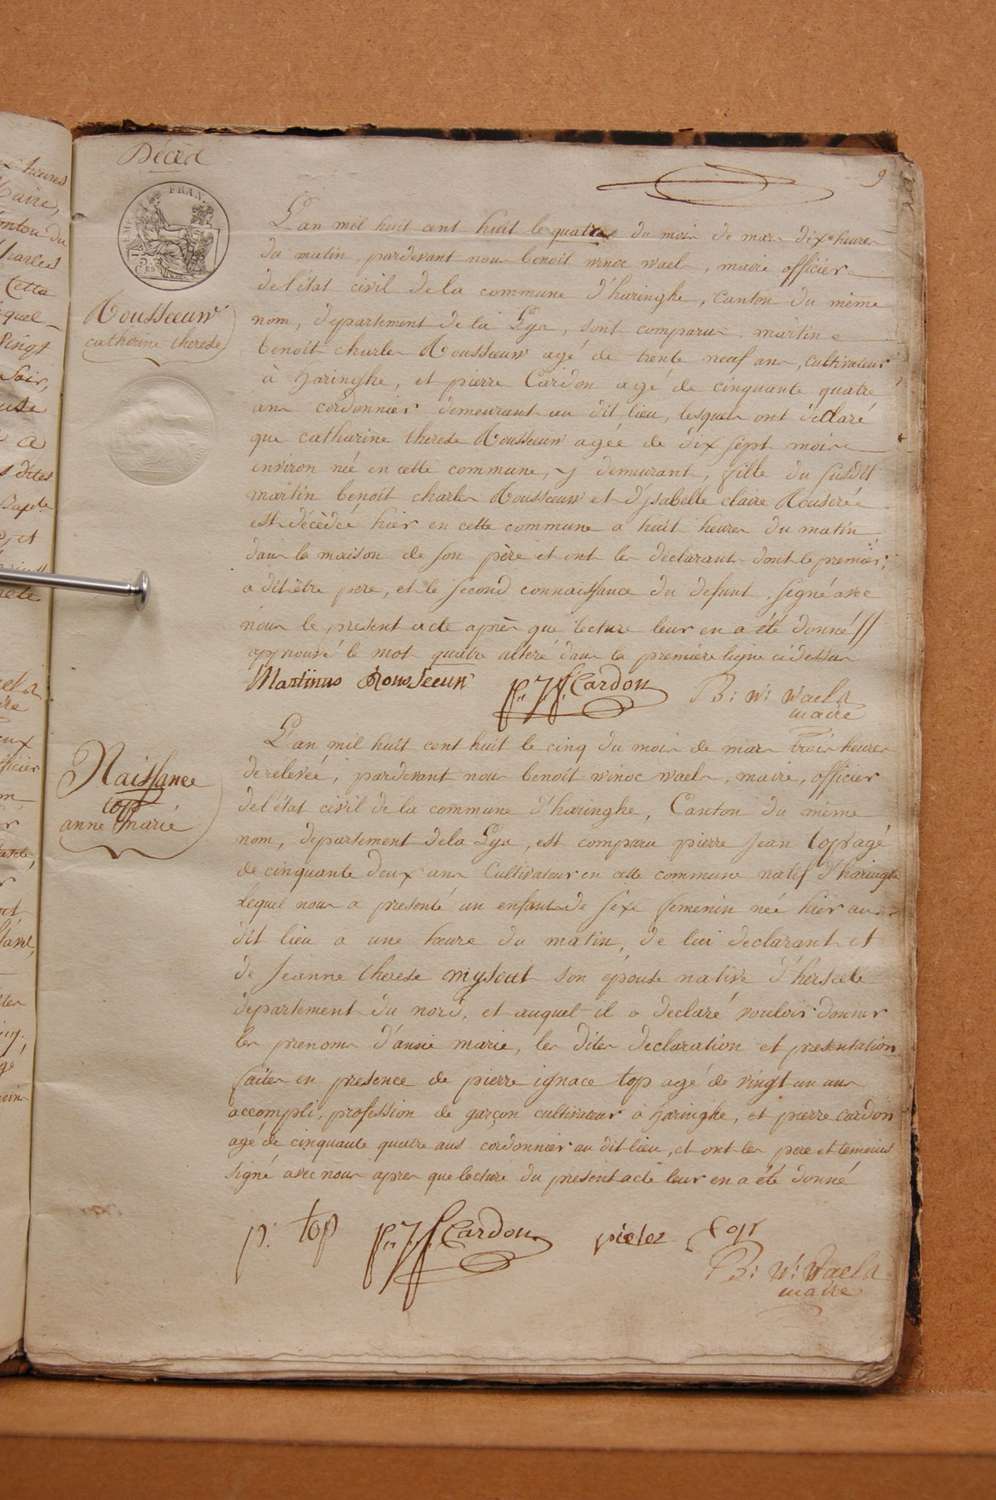 Décéd
9
FRAN.
Rousseeuw
catherine therese
L'an mil huit cent huit le quatre du mois de mars dix heures
du matin, pardevant nous benoit winoc wael, maire officier
de l'état civil de la commune d'haringhe, Canton du même
nom, département de la Lys, sont comparus martin
benoit charles Rousseeuw agé de trente neuf ans, cultivateur
à haringhe, et pierre Cardon agé de cinquante quatre
ans cordonnier demeurant au dit lieu, lesquels ont déclaré
que catharine therese Rousseeuw agée de dix sept mois
environ née en cette commune, y demeurant, fille du susdit
martin benoit charles Rousseeuw et d'ysabelle claire
est décédée hier en cette commune a huit heures du matin
dans la maison de son père et ont les declarants dont le premier
a dit être pere, et le second connaissance du defunt, signé avec
nous le present acte après que lecture leur en a été donné //
approuvé le mot quatre alteré dans la premiere ligne ci dessus
Martinus Rousseeuw p. j. f. Cardon B: W: Waels
maire
Naissance
top
anne marie
L'an mil huit cent huit le cinq du mois de mars trois heures
de relevée, pardevant nous benoit winoc wael, maire, officier
de l'état civil de la commune d'haringhe, Canton du même
nom, département de la Lys, est comparu pierre jean top agé
de cinquante deux ans Cultivateur en cette commune natif d'haringhe
lequel nous a presenté un enfant de sexe femenin née hier au
dit lieu a une heure du matin, de lui declarant et
de Jeanne therese mysout son épouse native d'herzele
departement du nord, et auquel il a declaré vouloir donner
les prenoms d'anne marie, les dites declaration et presentation
faites en presence de pierre ignace top agé de vingt un ans
accompli, profession de garçon cultivateur à haringhe, et pierre cardon
agé de cinquante quatre ans cordonnier au dit lieu, et ont les pere et temoins
signé avec nous apres que lecture du present acte leur en a été donné
p. top p. j. f. Cardon pieter top
B: W: Waels
maire